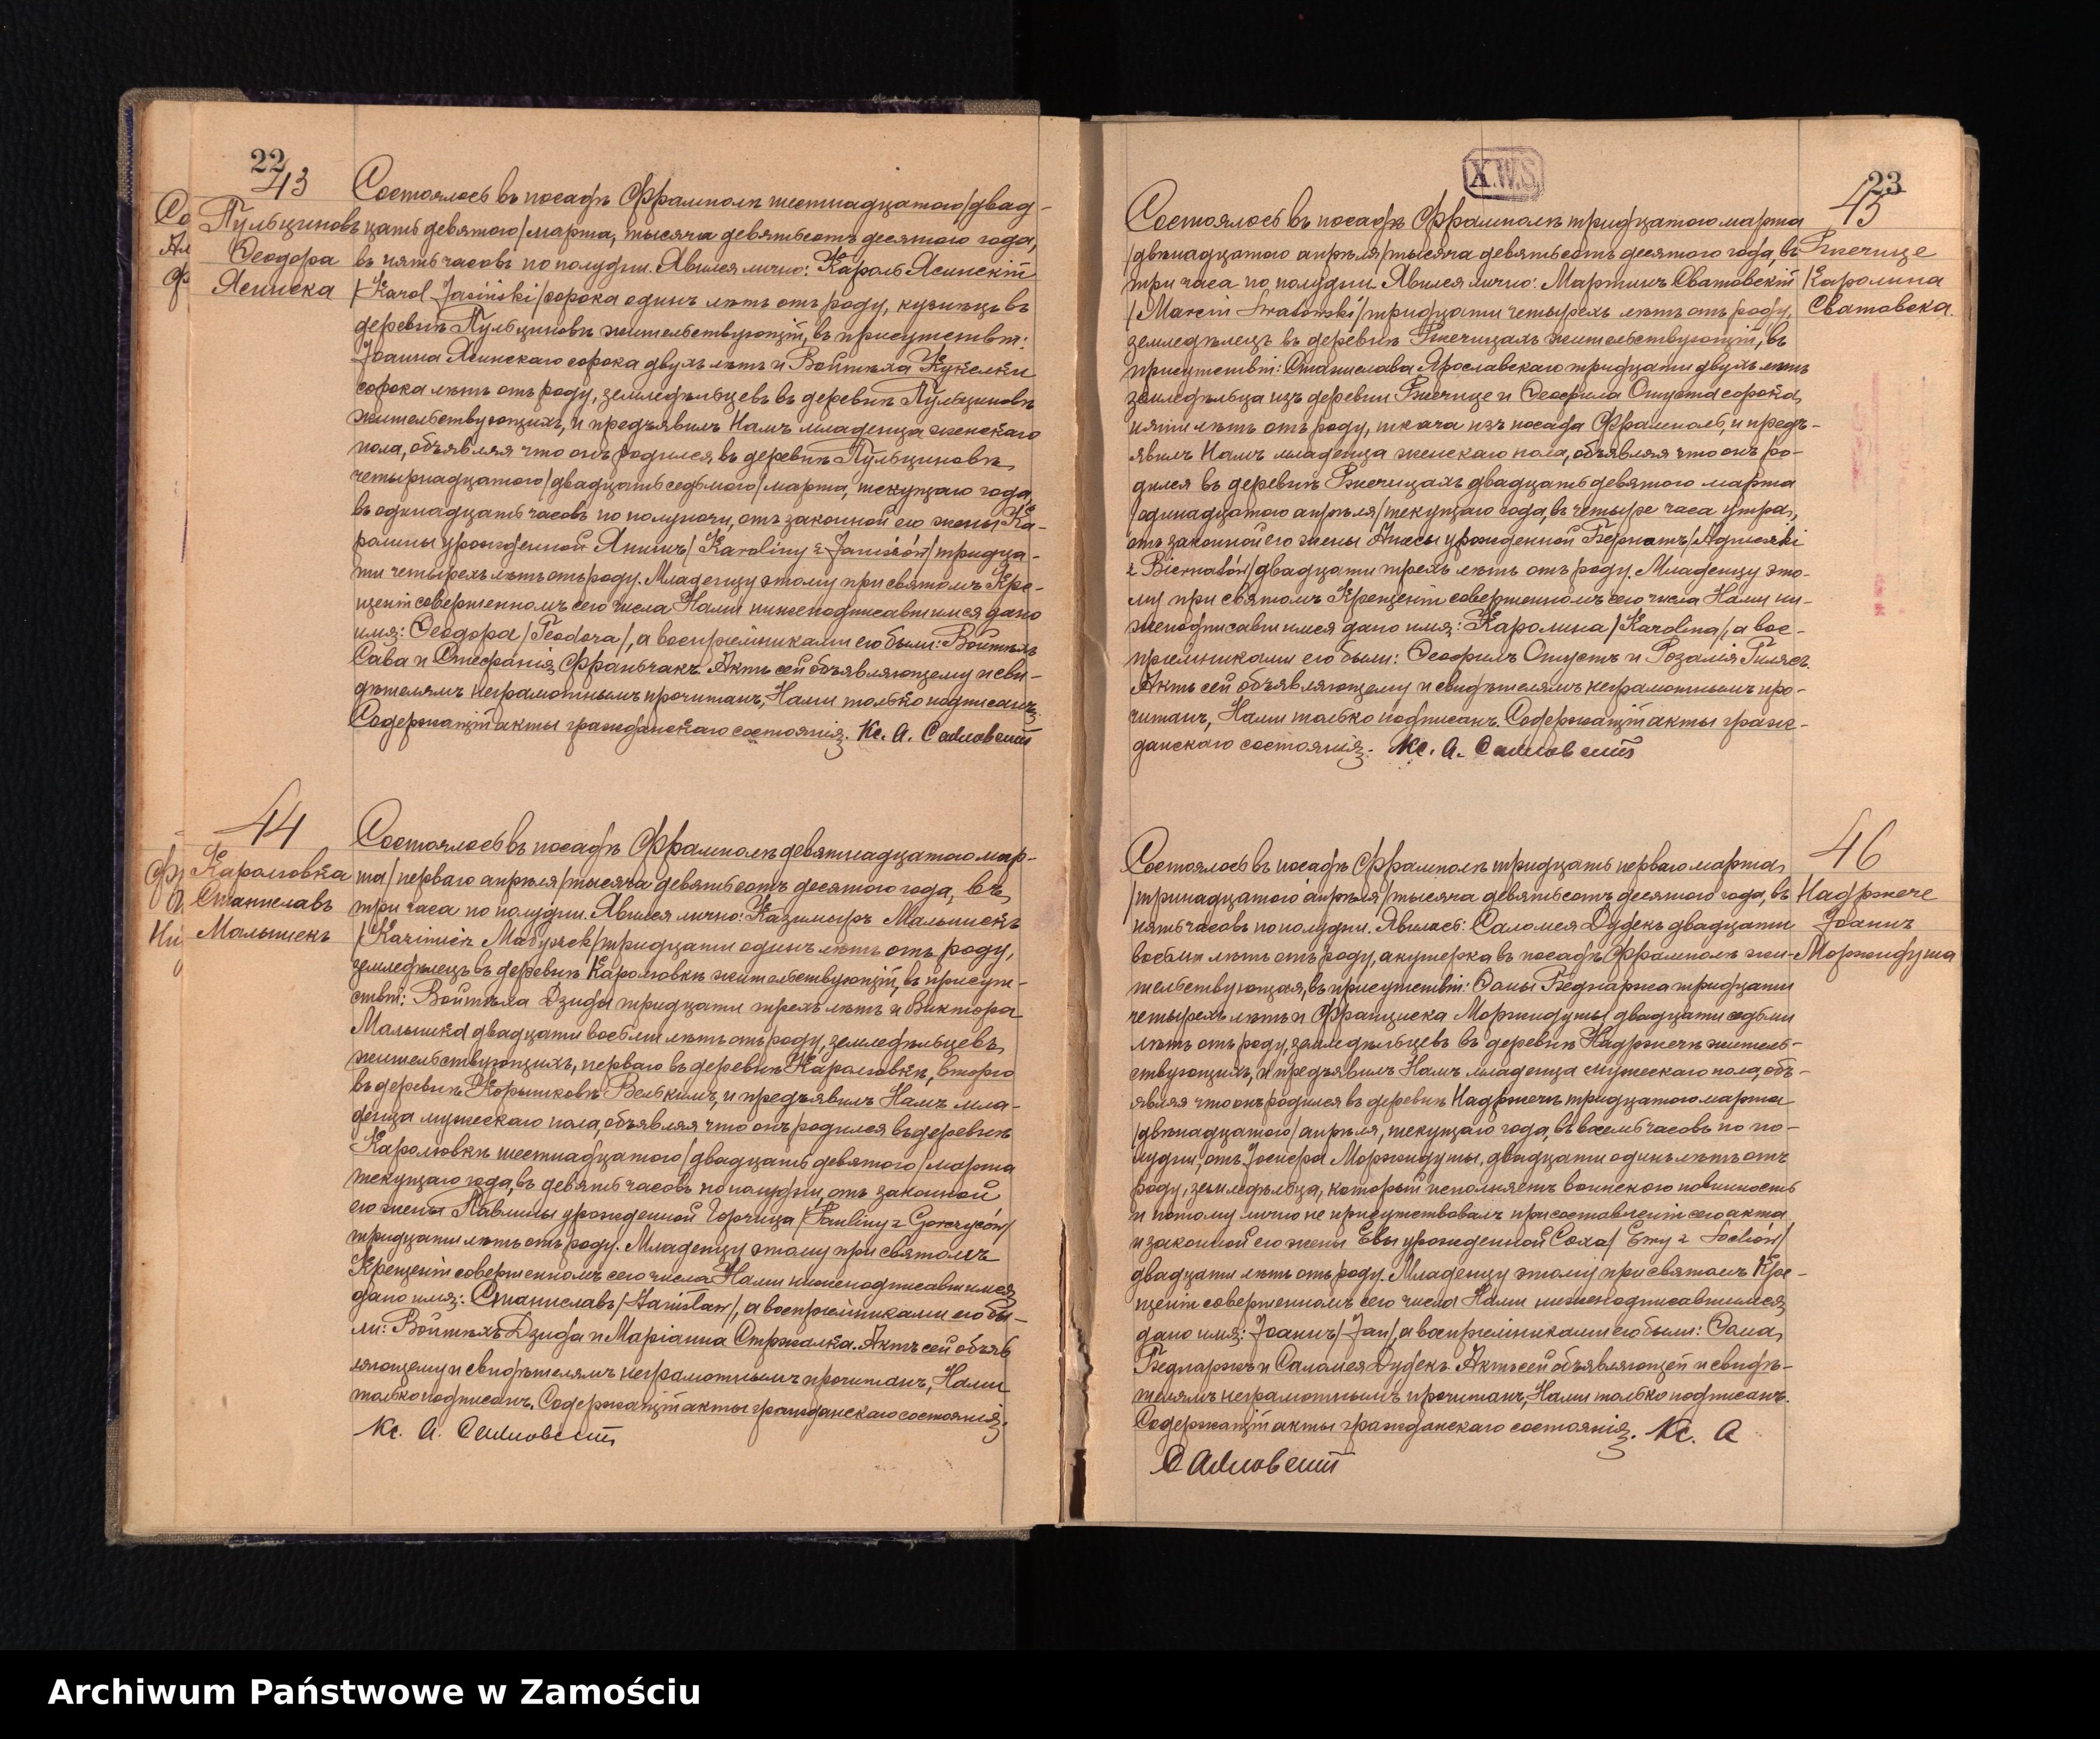 22
43
Пульциновъ
Теодора
Ясинска
Состоялось въ посадѣ Фрамполѣ шестнадцатого/двад-
цать девятого/марта, тысяча девятьсотъ десятого года,
въ пять часовъ по полудни. Явился лично: Кароль Ясинскій
/Karol Jasiński/сорока одинъ лѣтъ отъ роду, кузнецъ въ
деревнѣ Пульциновѣ жительствующій, въ присутствіи:
Іоанна Ясинскаго сорока двухъ лѣтъ и Войтѣха Кукелки
сорока лѣтъ отъ роду, земледѣльцевъ въ деревнѣ Пульциновѣ
жительствующихъ, и предъявилъ Намъ младенца женскаго
пола, объявляя что онъ родился въ деревнѣ Пульциновѣ
четырнадцатого/двадцать седьмого/марта, текущаго года,
въ одинадцать часовъ по полуночи, отъ законной его жены Ка-
ролины урожденной Янишъ/Karoliny z Janiszów/тридца-
ти четырехъ лѣтъ отъ роду. Младенцу этому при святомъ Кре-
щеніи совершенномъ сего числа Нами нижеподписавшимся дано
имя: Теодора/Teodora/, а воспріемниками его были: Войтѣхъ
Сава и Стефанія Франчакъ. Актъ сей объявляющему и сви-
дѣтелямъ неграмотнымъ прочитанъ, Нами только подписанъ.
Содержащій акты гражданскаго состоянія. Кс. А. Садловскій
44
Каролювка
Станиславъ
Малышекъ
Состоялось въ посадѣ Фрамполѣ девятнадцатого мар-
та/перваго апрѣля/тысяча девятьсотъ десятого года, въ
три часа по полудни. Явился лично: Казимиръ Малышекъ
/Kazimierz Małyszek/тридцати одинъ лѣтъ отъ роду,
земледѣлецъ въ деревнѣ Каролювкѣ жительствующій, въ присут-
ствіи: Войтѣха Дзиды тридцати трехъ лѣтъ и Виктора
Малышка двадцати восьми лѣтъ отъ роду, земледѣльцевъ
жительствующихъ, перваго въ деревнѣ Каролювкѣ, второго
въ деревнѣ Корытковѣ Велькимъ, и предъявилъ Намъ мла-
денца мужескаго пола, объявляя что онъ родился въ деревнѣ
Каролювкѣ шестнадцатого/двадцать девятого/марта
текущаго года, въ девять часовъ по полудни, отъ законной
его жены Павлины урожденной Горчица/Pauliny z Gorczyców/
тридцати лѣтъ отъ роду. Младенцу этому при святомъ
Крещеніи совершенномъ сего числа Нами нижеподписавшимся
дано имя: Станиславъ/Stanisław/, а воспріемниками его бы-
ли: Войтѣхъ Дзида и Маріанна Стржалка. Актъ сей объяв
ляющему и свидѣтелямъ неграмотнымъ прочитанъ, Нами
только подписанъ. Содержащій акты гражданскаго состоянія.
Кс. А. Садловскій
X.W.S.
23
45
Ржечице
Каролина
Сватовска
Состоялось въ посадѣ Фрамполѣ тридцатого марта
/двѣнадцатого апрѣля/тысяча девятьсотъ десятого года, въ
три часа по полудни. Явился лично: Мартинъ Сватовскій
/Marcin Swatowski/тридцати четырехъ лѣтъ отъ роду,
земледѣлецъ въ деревнѣ Ржечицахъ жительствующій, въ
присутствіи: Станислава Ярославскаго тридцати двухъ лѣтъ
земледѣльца изъ деревни Ржечице и Теофила Опуста сорока
пяти лѣтъ отъ роду, ткача изъ посада Фрамполь, и предъ-
явилъ Намъ младенца женскаго пола, объявляя что онъ ро-
дился въ деревнѣ Ржечицахъ двадцать девятого марта
/одинадцатого апрѣля/текущаго года, въ четыре часа утра,
отъ законной его жены Агнесы урожденной Бернатъ/Agnieszki
z Biernatów/двадцати трехъ лѣтъ отъ роду. Младенцу это-
му при святомъ Крещеніи совершенномъ сего числа Нами ни-
жеподписавшимся дано имя: Каролина/Karolina/, а вос-
пріемниками его были: Теофилъ Опустъ и Розалія Гилясъ.
Актъ сей объявляющему и свидѣтелямъ неграмотнымъ про-
читанъ, Нами только подписанъ. Содержащій акты граж-
данскаго состоянія. Кс. А. Садловскій
46
Надржече
Іоаннъ
Моржидуша
Состоялось въ посадѣ Фрамполѣ тридцать перваго марта
/тринадцатого апрѣля/тысяча девятьсотъ десятого года, въ
пять часовъ по полудни. Явилась: Саломея Дудекъ двадцати
восьми лѣтъ отъ роду, акушерка въ посадѣ Фрамполѣ жи-
тельствующая, въ присутствіи: Томы Беднаржа тридцати
четырехъ лѣтъ и Франциска Моржидушы двадцати седьми
лѣтъ отъ роду, земледѣльцевъ въ деревнѣ Надржечѣ житель-
ствующихъ, и предъявилъ Намъ младенца мужескаго пола, объ-
являя что онъ родился въ деревнѣ Надржечѣ тридцатого марта
/двѣнадцатого/апрѣля, текущаго года, въ восемь часовъ по по-
лудни, отъ Іосифа Моржидушы, двадцати одинъ лѣтъ отъ
роду, земледѣльца, который исполняетъ воинскою повинность
и потому лично не присутствовалъ при составленіи сего акта
и законной его жены Евы урожденной Соха/Ewy z Sochów/
двадцати лѣтъ отъ роду. Младенцу этому при святомъ Кре-
щеніи совершенномъ сего числа Нами нижеподписавшимся
дано имя: Іоаннъ/Jan/, а воспріемниками его были: Тома
Беднаржъ и Саломея Дудекъ. Актъ сей объявляющей и свидѣ-
телямъ неграмотнымъ прочитанъ, Нами только подписанъ.
Содержащій акты гражданскаго состоянія. Кс. А
Садловскій
Archiwum Państwowe w Zamościu